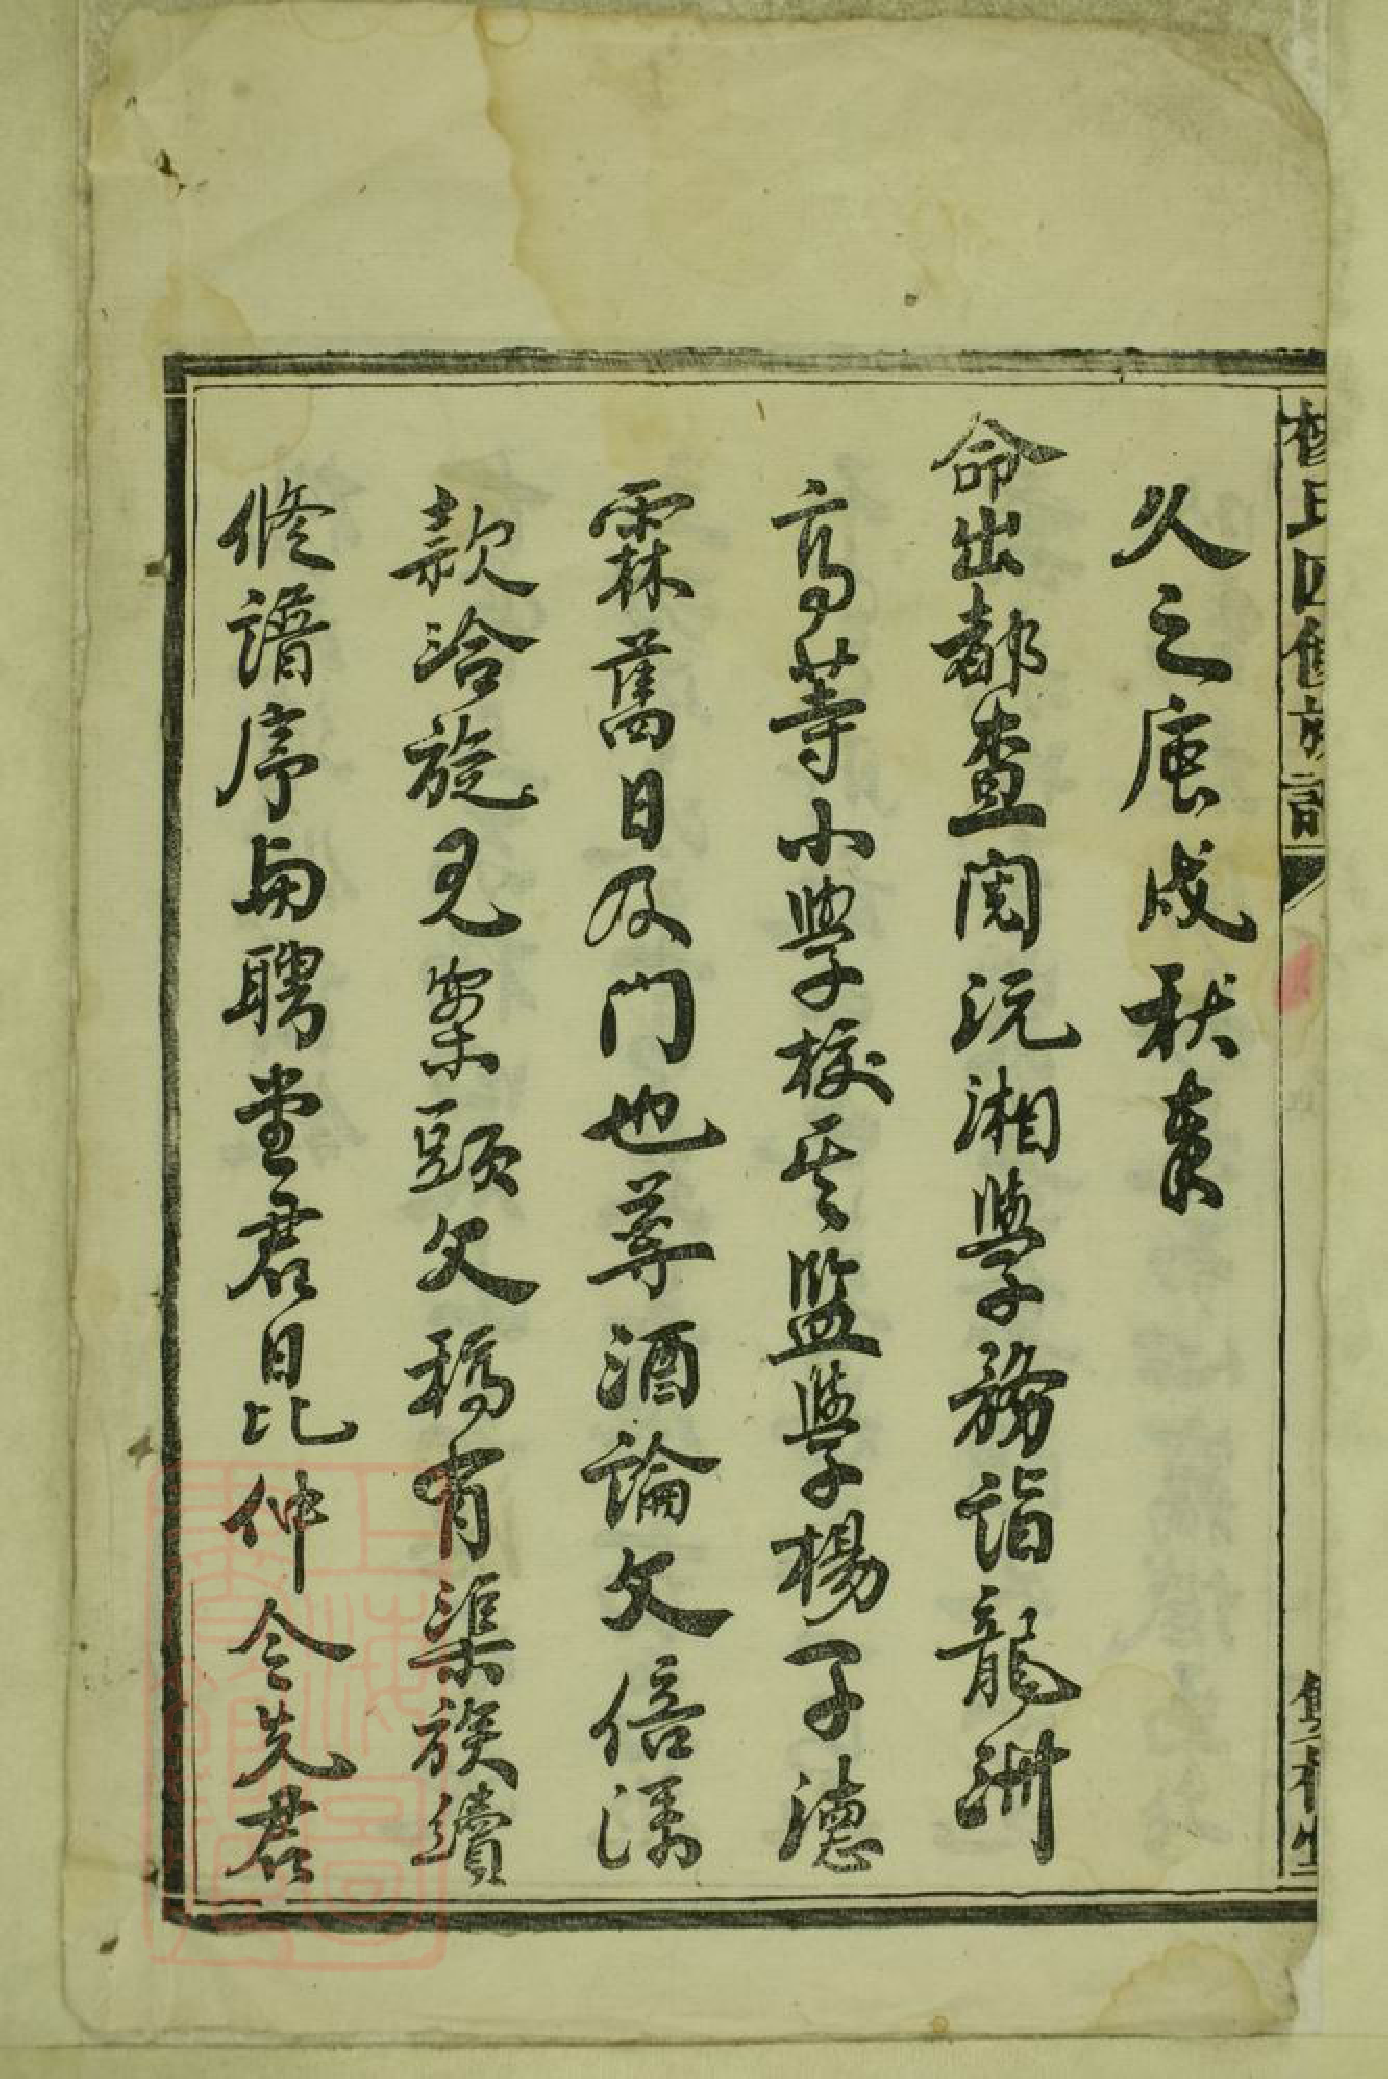 楊氏四修族譜
久之庚戌秋奉
命出都查閱沅湘學務詣龍洲
高等小學校其監學楊子德
霖舊日及門也尊酒論文倍深
款洽旋見案頭文稿有渠族續
修譜序與聘堂君且比仲令先君
上海圖書館藏